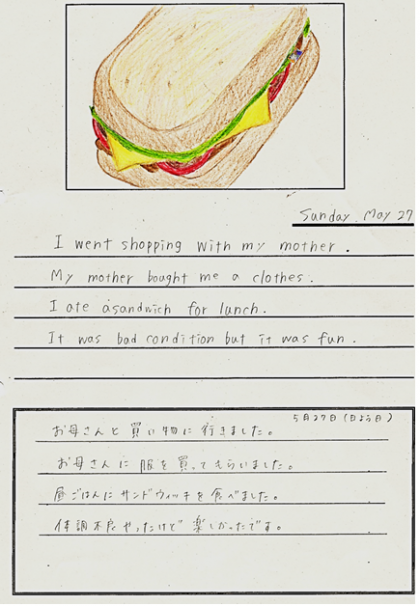 Sunday, May 27
I went shopping with my mother.
My mother bought me a clothes.
I ate a sandwich for lunch.
It was bad condition but it was fun.
5月27日(日よう日)
お母さんと買い物に行きました。
お母さんに服を買ってもらいました。
昼ごはんにサンドウィッチを食べました。
体調不良やったけど楽しかったです。